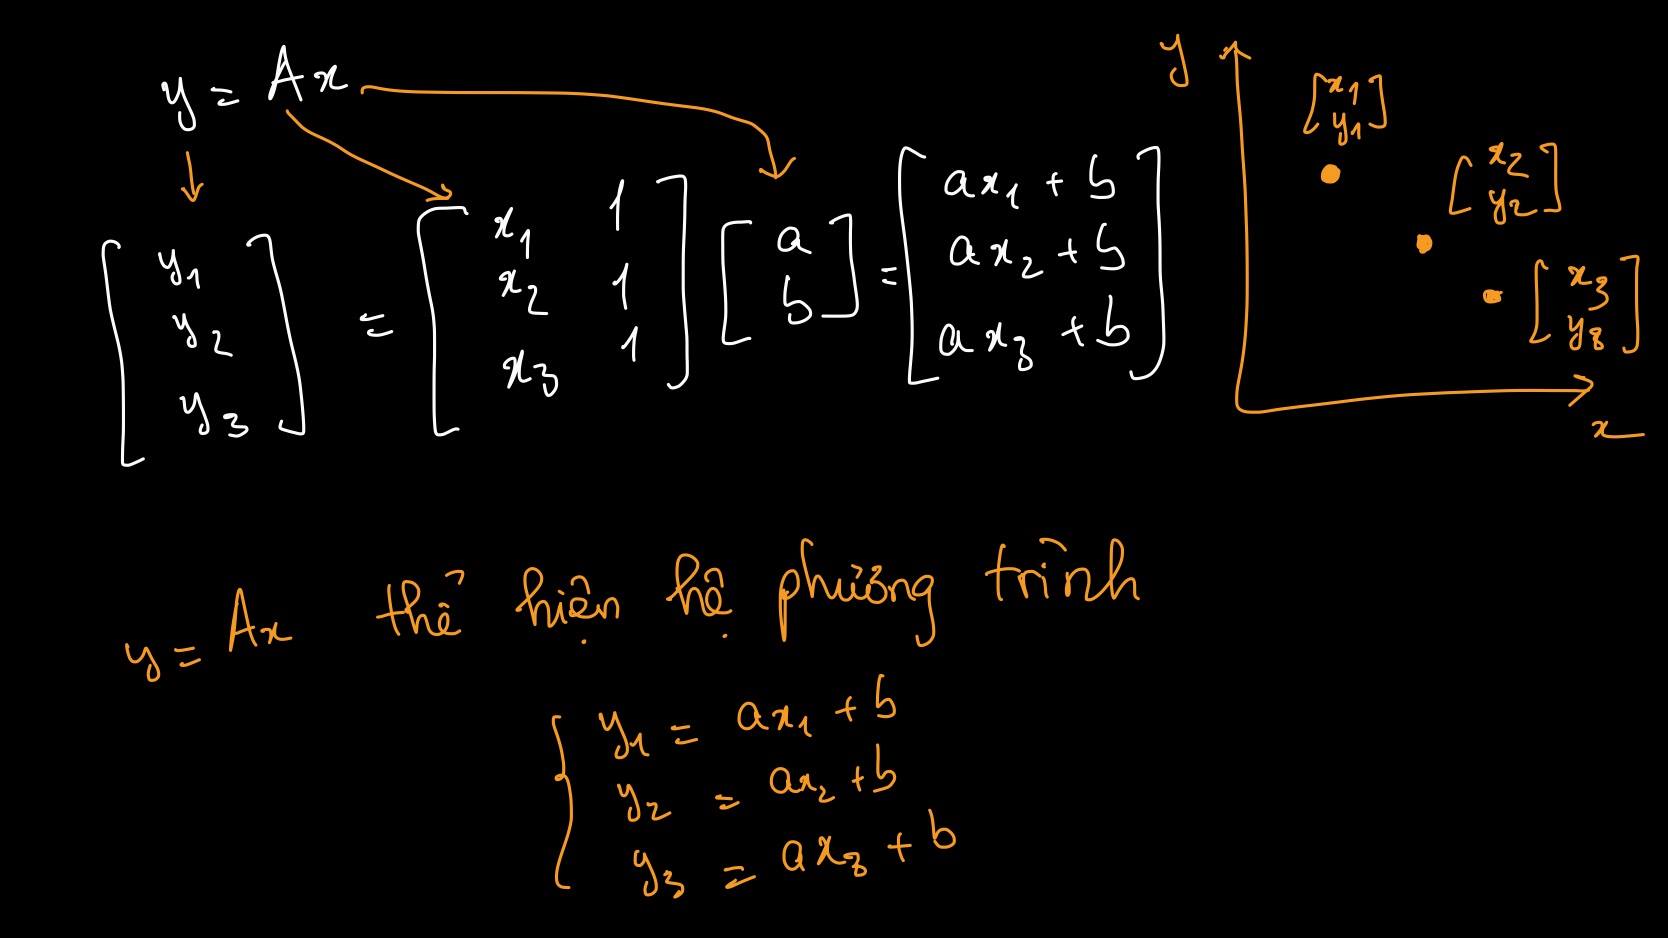 y = Ax
[y₁ y₂ y₃] = [x₁ 1 x₂ 1 x₃ 1] [a b] = [ax₁ + b ax₂ + b ax₃ + b]
y
[x₁ y₁]
[x₂ y₂]
[x₃ y₃]
x
y = Ax thể hiện hệ phương trình
{ y₁ = ax₁ + b
y₂ = ax₂ + b
y₃ = ax₃ + b